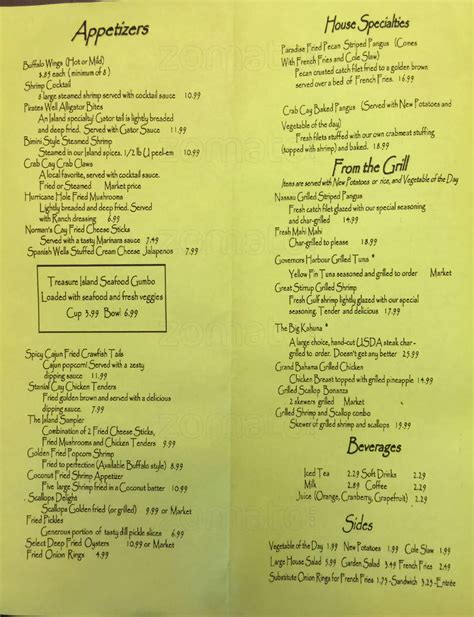 Appetizers
Buffalo Wings (Hot or Mild)
8.85 each (minimum of 8)
Shrimp Cocktail
8 large steamed shrimp served with cocktail sauce 10.99
Pirates Well Alligator Bites
An Island specialty! Gator tail is lightly breaded
and deep fried. Served with Gator Sauce 11.99
Bimini Style Steamed Shrimp
Steamed in our Island spices. 1/2 lb U peel-em 10.99
Crab Cay Crab Claws
A local favorite, served with cocktail sauce.
Fried or Steamed Market price
Hurricane Hole Fried Mushrooms
Lightly breaded and deep fried. Served
with Ranch dressing 6.99
Norman's Cay Fried Cheese Sticks
Served with a tasty Marinara sauce 7.49
Spanish Wells Stuffed Cream Cheese Jalapenos 7.99
Treasure Island Seafood Gumbo
Loaded with seafood and fresh veggies
Cup 3.99 Bowl 6.99
Spicy Cajun Fried Crawfish Tails
Cajun popcorn! Served with a zesty
dipping sauce 11.99
Stanial Cay Chicken Tenders
Fried golden brown and served with a delicious
dipping sauce. 7.99
The Island Sampler
Combination of 2 Fried Cheese Sticks,
Fried Mushrooms and Chicken Tenders 9.99
Golden Fried Popcorn Shrimp
Fried to perfection (Available Buffalo style) 8.99
Coconut Fried Shrimp Appetizer
Five large Shrimp fried in a Coconut batter 10.99
Scallops Delight
Scallops Golden fried (or grilled) or Market
Fried Pickles
Generous portion of tasty dill pickle slices 6.99
Select Deep Fried Oysters 10.99 or Market
Fried Onion Rings 4.99
House Specialties
Paradise Fried Pecan Striped Pangus (Comes
With French Fries and Cole Slaw)
Pecan crusted catch filet fried to a golden brown
served over a bed of French Fries. 16.99
Crab Cay Baked Pangus (Served with New Potatoes and
Vegetable of the day)
Fresh filets stuffed with our own crabmeat stuffing
(topped with shrimp) and baked. 18.99
From the Grill
Items are served with New Potatoes or rice, and Vegetable of the Day
Nassau Grilled Striped Pangus
Fresh catch filet glazed with our special seasoning
and char-grilled 14.99
Fresh Mahi Mahi
Char-grilled to please 18.99
Governors Harbour Grilled Tuna *
Yellow Fin Tuna seasoned and grilled to order Market
Great Stirrup Grilled Shrimp
Fresh Gulf shrimp lightly glazed with our special
seasoning. Tender and delicious 17.99
The Big Kahuna *
A large choice, hand-cut USDA steak char-
grilled to order. Doesn't get any better 25.99
Grand Bahama Grilled Chicken
Chicken Breast topped with grilled pineapple 14.99
Grilled Scallop Bonanza
2 skewers grilled Market
Grilled Shrimp and Scallop combo
Skewer of grilled shrimp and scallops 19.99
Beverages
Iced Tea 2.29 Soft Drinks 2.29
Milk 2.89 Coffee 2.29
Juice (Orange, Cranberry, Grapefruit) 2.29
Sides
Vegetable of the Day 1.99 New Potatoes 1.99 Cole Slaw 1.99
Large House Salad 5.99 Garden Salad 3.99 French Fries 2.49
Substitute Onion Rings for French Fries 1.75-Sandwich 3.25-Entrée